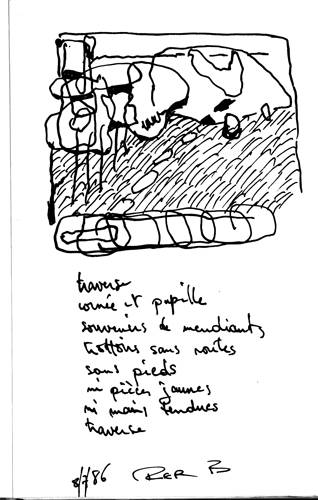 traverse
cornée et pupille
souvenirs de mendiants
trottoirs sans routes
sans pieds
ni pièces jaunes
ni mains tendues
traverse
8/7/86 RER B